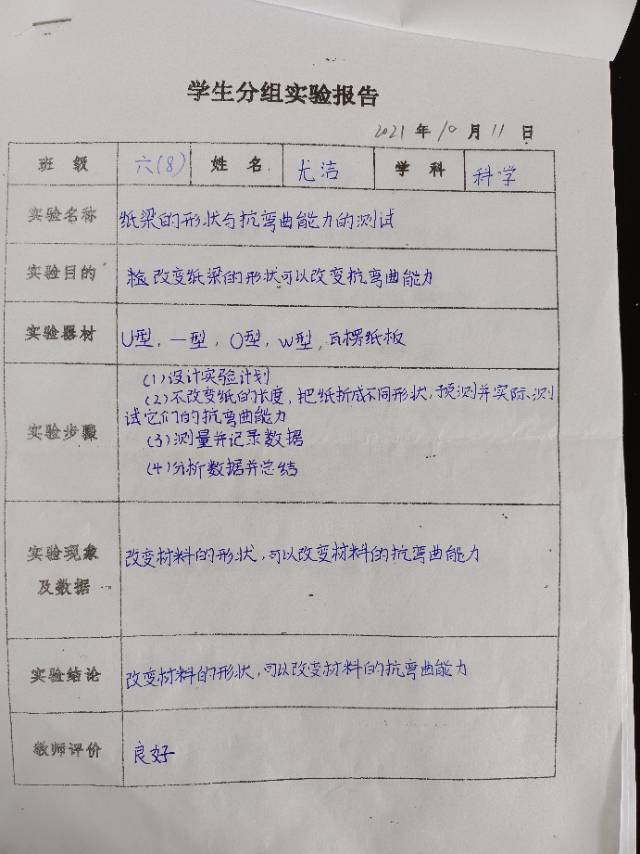 学生分组实验报告
2021年10月11日
班级 六(8) 姓名 尤洁 学科 科学
实验名称 纸梁的形状与抗弯曲能力的测试
实验目的 改变纸梁的形状可以改变抗弯曲能力
实验器材 U型,一型,O型,W型,瓦楞纸板
(1)设计实验计划
(2)不改变纸的长度,把纸折成不同形状,预测并实际测
实验步骤 试它们的抗弯曲能力
(3)测量并记录数据
(4)分析数据并总结
实验现象 改变材料的形状,可以改变材料的抗弯曲能力
及数据
实验结论 改变材料的形状,可以改变材料的抗弯曲能力
教师评价 良好